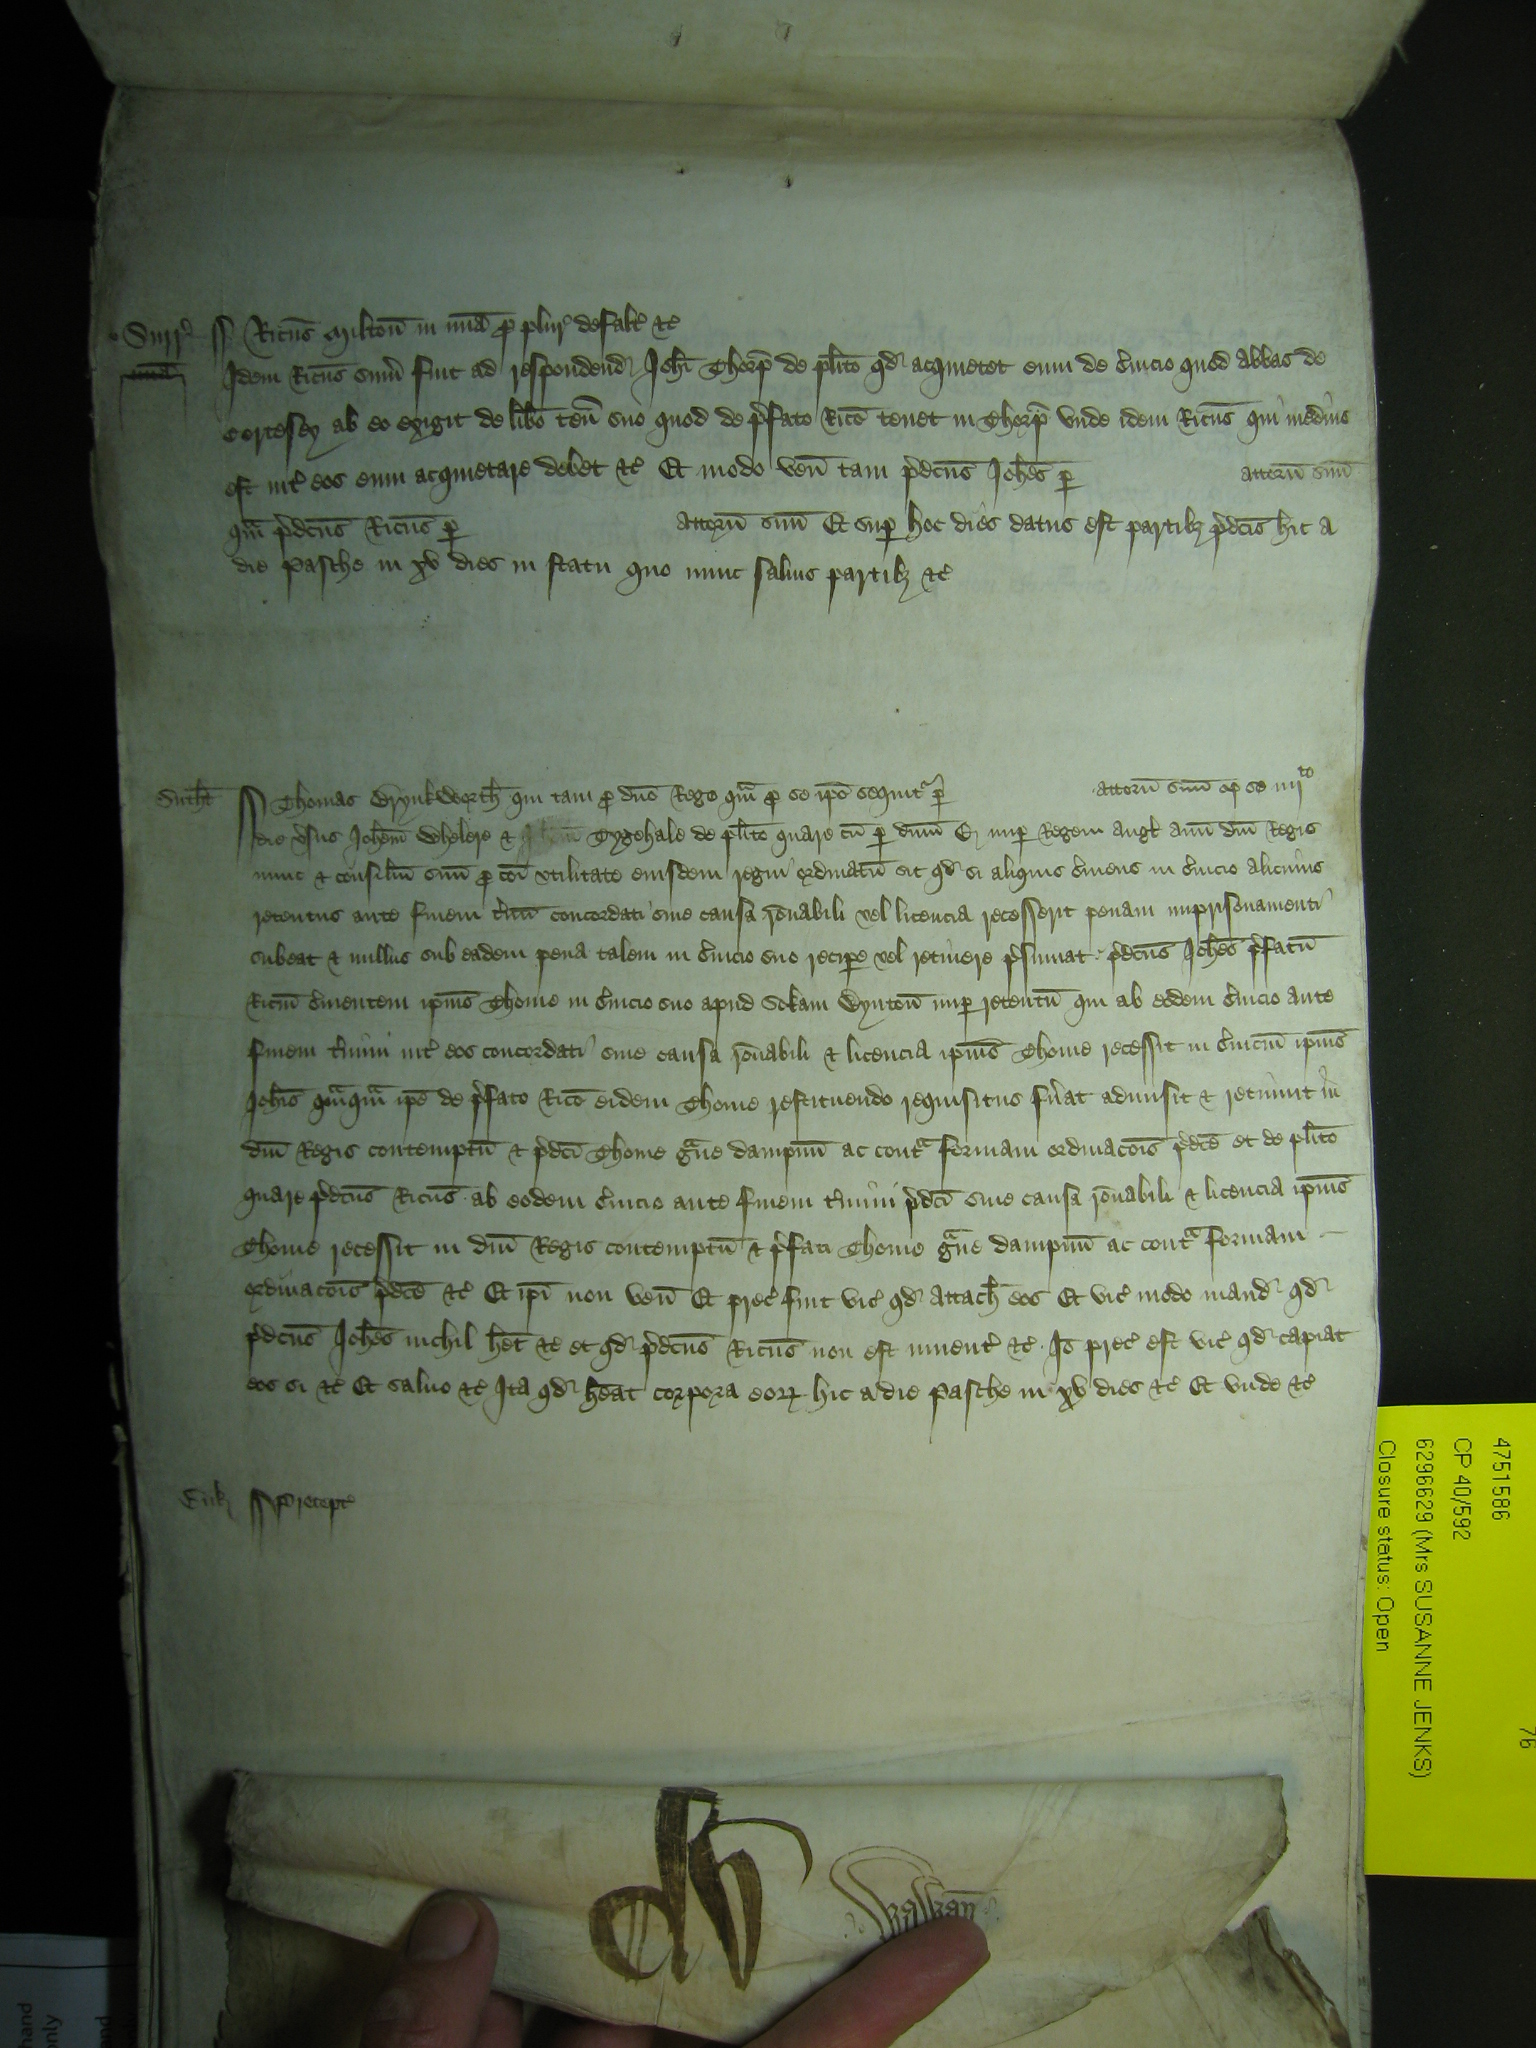 Surr̉ Ricūs Miltoū in mīa p̱ plur̉ defalt̉ &c̉
Idem Ricūs sum̄ fuit ad respondend̉ Joh̄i Thorp̄ de pl̄ito qd̉ acquietet eum de s̉uicio quod Abbas de
Certesey ab eo exigit de lib̄o ten̄ suo quod de p̉fato Ric̄o tenet in Thorp̄ vnde idem Ricūs qui medius
est int̉ eos eum acquietare debet &c̉ Et modo ven̄ tam p̉dc̄us Joh̄es p̱ attorn̄ suū
qm̄ p̉dc̄us Ricūs p̱ attorn̄ suū Et sup̱ hoc dies datus est partibȝ p̉dc̄is hic a
die Pasche in xv dies in statu quo nunc saluis partibȝ &c̉
Sutht̉ Thomas Drynkworth̄ qui tam p̱ dn̄o Rege qm̄ p̱ se ip̄o sequit̉ p̱ attorn̄ suū op̄ se iiij to
die v̉sus Joh̄em Whelere & Tygehale de pl̄ito quare cū p̱ dn̄m E nup̱ Regem Angl̉ auū dn̄i Regis
nunc & consiliū suū p̱ cōi vtilitate eiusdem regni ordinatū sit qd̉ si aliquis s̉uiens in s̉uicio alicuius
retentus ante finem t̉mī concordati sine causa rōnabili vel licencia recesserit penam imprisonamenti
subeat & nullus sub eadem pena talem in s̉uicio suo recip̱e vel retinere p̉sumat p̉dc̄us Joh̄es p̉fatū
Ricūm s̉uientem ip̄ius Thome in s̉uicio suo apud Sokam Wyntoū nup̱ retentū qui ab eodem s̉uicio ante
finem t̉mini int̉ eos concordati sine causa rōnabili & licencia ip̄ius Thome recessit in s̉uiciū ip̄ius
Joh̄is qm̄qm̄ ip̄e de p̉fato Ric̄o eidem Thome restituendo requisitus fủat admisit & retinuit in
dn̄i Regis contemptū & p̉dc̄i Thome g̉ue dampnū ac cont̉ formam ordinacōis p̉dc̄e et de pl̄ito
quare p̉dc̄us Ricūs ab eodem s̉uicio ante finem t̉mini p̉dc̄i sine causa rōnabili & licencia ip̄ius
Thome recessit in dn̄i Regis contemptū & p̉fati Thome g̉ue dampnū ac cont̉ formam
ordinacōis p̉dc̄e &c̉ Et ip̄i non ven̄ Et prec̉ fuit vic̉ qd̉ attach̄ eos Et vic̉ modo mand̉ qd̉
p̉dc̄us Joh̄es nichil h̄et &c̉ et qd̉ p̉dc̄us Ricūs non est inuent̉ &c̉ Iō prec̉ est vic̉ qd̉ capiat
eos si &c̉ Et saluo &c̉ Ita qd̉ h̄eat corpora eoꝝ hic a die Pasche in xv dies &c̉ Et vnde &c̉
Precept̉
4751586
CP 40/592
6296629 (Mrs SUSANNE JENKS)
Closure status: Open
76